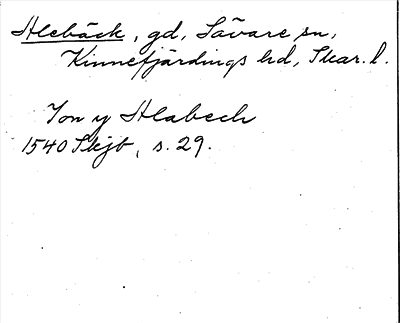 Hlebäck, gd, Sävare sn,
Kinnefjärdings hd, Skar. l.
Jon y Hlabech
1540 Skjb, s. 29.